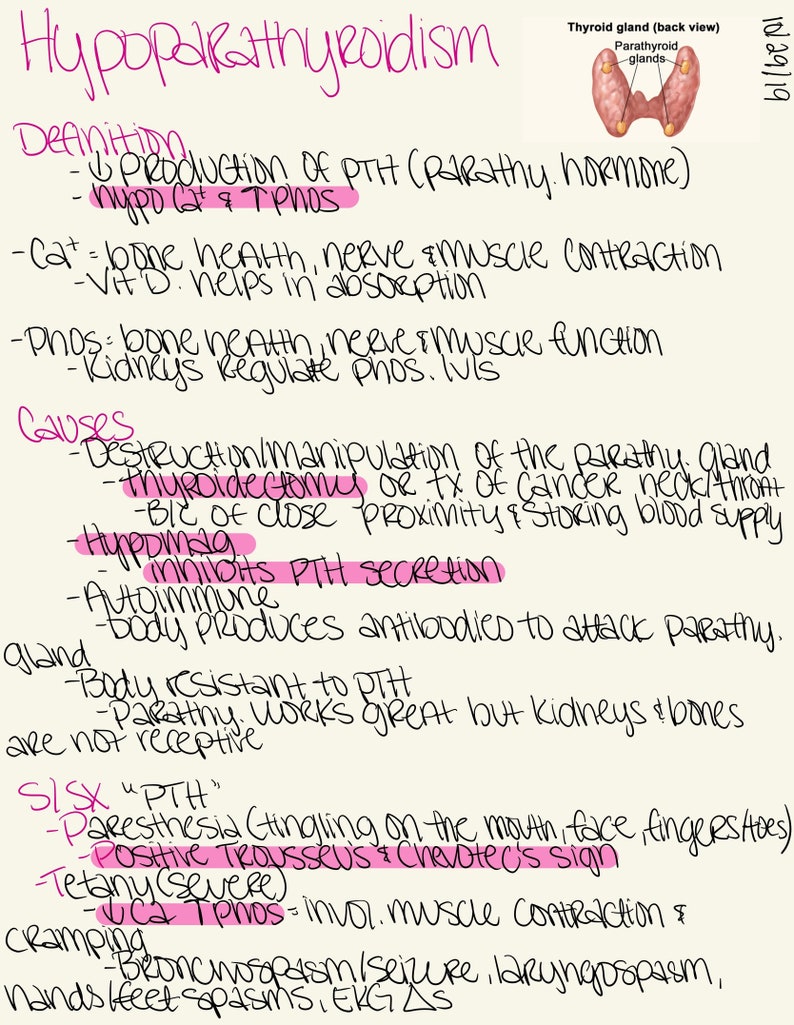 Hypoparathyroidism
Thyroid gland (back view)
Parathyroid
glands
10/29/19
Definition
- ↓ production of PTH (parathy. hormone)
- hypo Ca⁺ & ↑ phos
- Ca⁺ = bone health, nerve & muscle contraction
- Vit D. helps in absorption
- Phos = bone health, nerve & muscle function
- Kidneys regulate phos. lvls
Causes
- Destruction/manipulation of the parathy. gland
- thyroidectomy or tx of cancer neck/throat
- B/c of close proximity & storing blood supply
- Hypomag
- inhibits PTH secretion
- Autoimmune
- body produces antibodies to attack parathy.
gland
- Body resistant to PTH
- Parathy. works great but kidneys & bones
are not receptive
S/SX "PTH"
- Paresthesia (tingling on the mouth, face, fingers/toes)
- Positive Trousseus & Chevotec's sign
- Tetany (severe)
- ↓ Ca ↑ phos = invol. muscle contraction &
cramping
- Bronchospasm/seizure, laryngospasm,
hands/feet spasms, EKG Δs